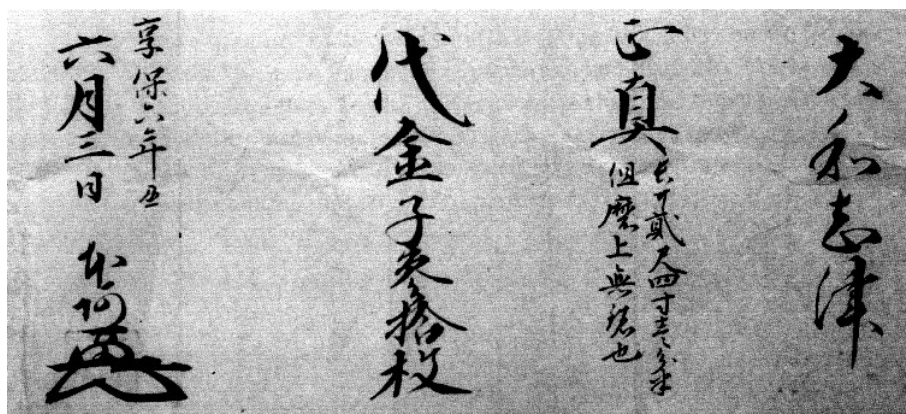 大和志津
正真
長サ貳尺四寸壱分半
但磨上無銘也
代金子参拾枚
享保六年丑
六月三日
本阿